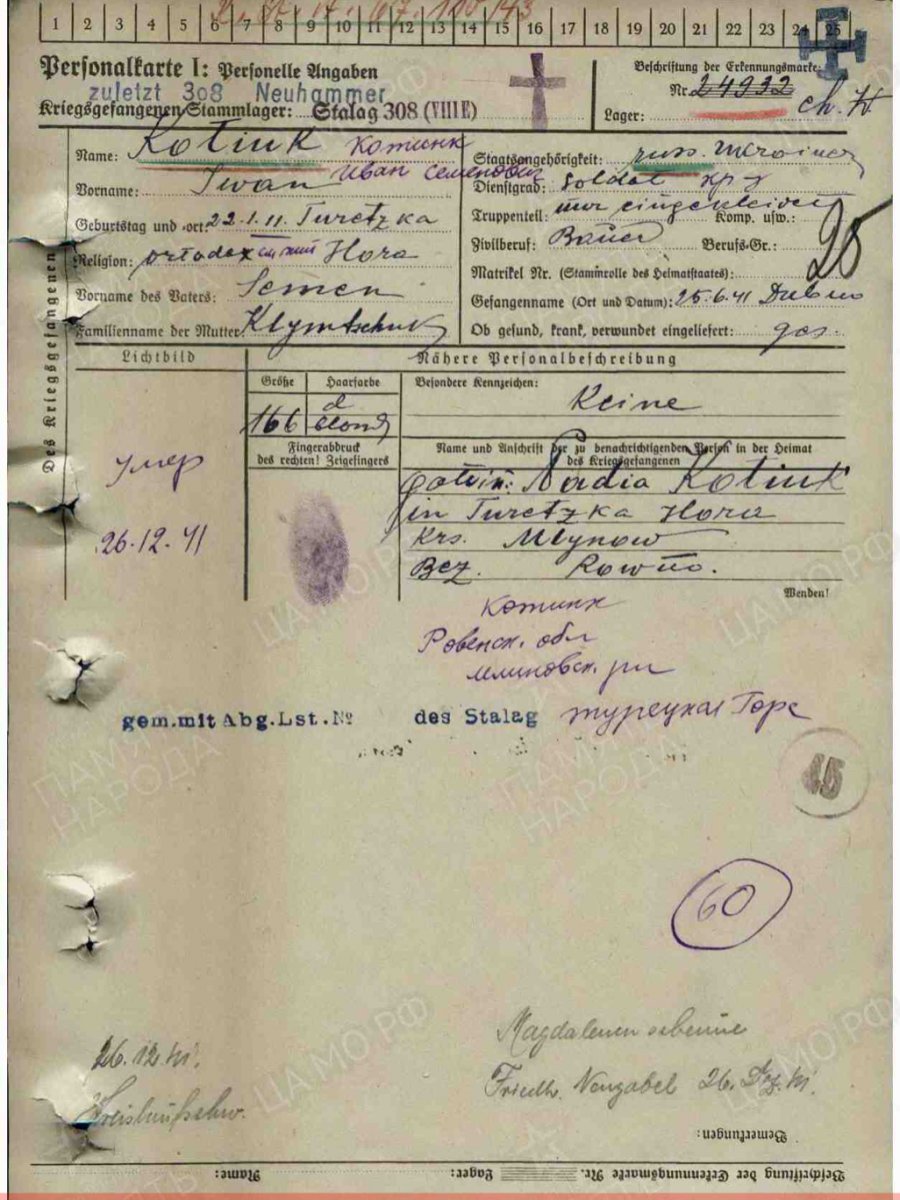 1 2 3 4 5 6 7 8 9 10 11 12 13 14 15 16 17 18 19 20 21 22 23 24 25
Personalkarte I: Personelle Angaben
zuletzt 308 Neuhammer
Kriegsgefangenen-Stammlager: Stalag 308 (VIII E)
Beschriftung der Erkennungsmarke:
Nr. 24932
Lager:
Des Kriegsgefangenen
Name: Kotiuk Котюк
Vorname: Iwan Иван Семенович
Geburtstag und -ort: 22.1.11. Turetzka
Religion: ortodox Hora
Vorname des Vaters: Semen
Familienname der Mutter: Klymtschuk
Staatsangehörigkeit: russ. Ukrainer
Dienstgrad: Soldat кр-ц
Truppenteil: nur eingekleidet Komp. usw.:
Zivilberuf: Bauer Berufs-Gr.:
25
Matrikel Nr. (Stammrolle des Heimatstaates):
Gefangennahme (Ort und Datum): 25.6.41 Dubno
Ob gesund, krank, verwundet eingeliefert: ges.
Lichtbild
Nähere Personalbeschreibung
Größe Haarfarbe Besondere Kennzeichen:
166 d blond Keine
Fingerabdruck
des rechten! Zeigefingers
Name und Anschrift der zu benachrichtigenden Person in der Heimat
des Kriegsgefangenen
Gattin: Nadia Kotiuk
in Turetzka Hora
Krs. Mlynow
Bez. Rowno.
Wenden!
умер
26.12.41
Котюк
Ровенск. обл
Млиновск. р-н
Турецкая Гора
gem.mit Abg.Lst.№ des Stalag
45
60
26.12.41.
Kreislaufschw.
Friedh. Neugabel 26. Dez. 41.
Bemerkungen:
Beschriftung der Erkennungsmarke Nr. Lager: Name: